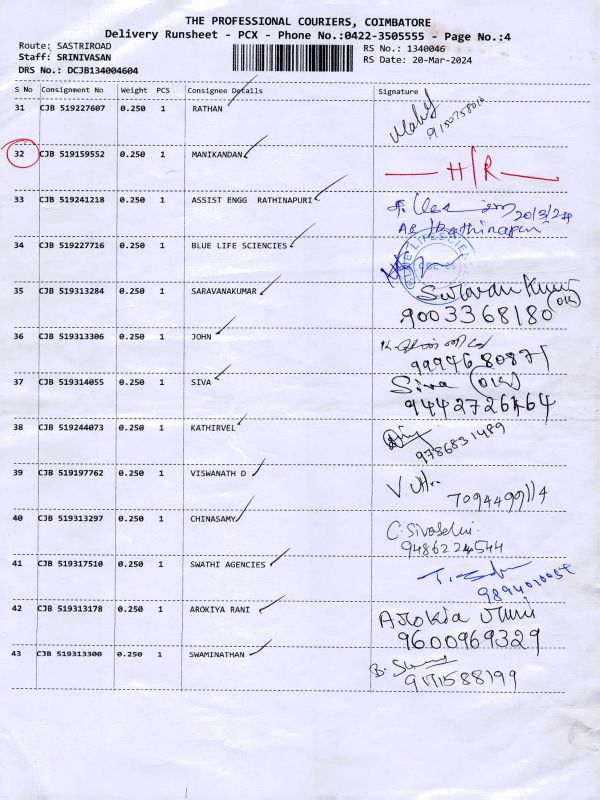 THE PROFESSIONAL COURIERS, COIMBATORE
Delivery Runsheet - PCX - Phone No.:0422-3505555 - Page No.:4
Route: SASTRIROAD RS No.: 1340046
Staff: SRINIVASAN RS Date: 20-Mar-2024
DRS No.: DCJB134004604
S No Consignment No Weight PCS Consignee Details Signature
31 CJB 519227607 0.250 1 RATHAN
32 CJB 519159552 0.250 1 MANIKANDAN H/R
33 CJB 519241218 0.250 1 ASSIST ENGG RATHINAPURI 20/3/24
AE Rathinapuri
34 CJB 519227716 0.250 1 BLUE LIFE SCIENCIES BLUE LIFE SCIENCE
35 CJB 519313284 0.250 1 SARAVANAKUMAR Saravan Kumar
9003368180
36 CJB 519313306 0.250 1 JOHN
9994680871
37 CJB 519314055 0.250 1 SIVA Siva
9442726164
38 CJB 519244073 0.250 1 KATHIRVEL
9786831489
39 CJB 519197762 0.250 1 VISWANATH D
7094499114
40 CJB 519313297 0.250 1 CHINASAMY
9486224544
41 CJB 519317510 0.250 1 SWATHI AGENCIES
9894010054
42 CJB 519313178 0.250 1 AROKIYA RANI Arokia
9600969329
43 CJB 519313300 0.250 1 SWAMINATHAN